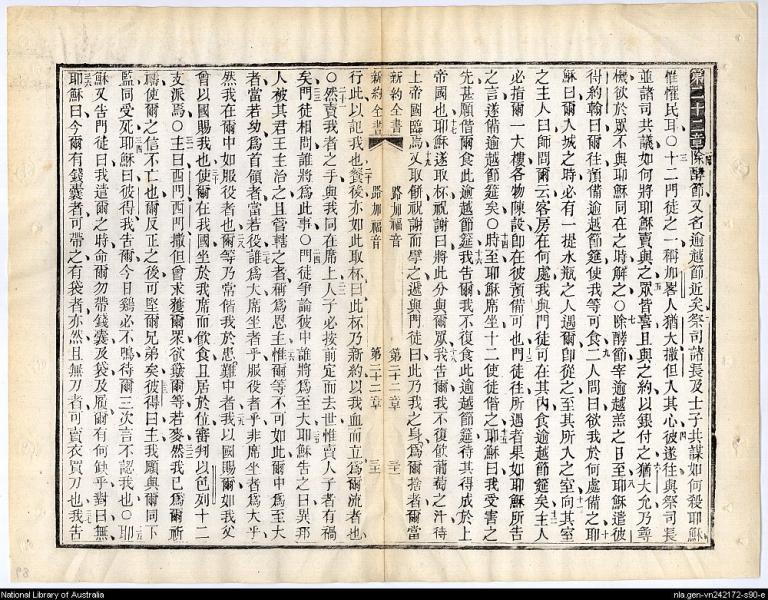 第二十二章 除酵節又名逾越節近矣祭司諸長及士子共謀如何殺耶穌
惟懼民耳〇十二門徒之一稱加畧人猶大撒但入其心彼遂往與祭司長
並諸司共議如何將耶穌賣與之眾皆喜且與之約以銀付之猶大允乃尋
機欲於眾不與耶穌同在之時解之〇除酵節宰逾越羔之日至耶穌遣彼
得約翰曰爾往預備逾越節筵使我等可食二人問曰欲我於何處備之耶
穌曰爾入城之時必有一提水瓶之人遇爾卽從之至其所入之室向其室
之主人曰師問爾云客房在何處我與門徒可在其內食逾越節筵矣主人
必指爾一大樓各物陳設卽在彼預備可也門徒往所遇者果如耶穌所告
之言遂備逾越節筵矣〇時至耶穌席坐十二使徒偕之耶穌曰我受害之
先甚願偕爾食此逾越節筵我告爾我不復食此逾越節筵待其得成於上
帝國也耶穌遂取杯祝謝曰將此分與爾眾我告爾我不復飲葡萄之汁待
上帝國臨焉又取餅祝謝而擘之遞與門徒曰此乃我之身爲爾捨者爾當
新約全書 路加福音 第二十二章
新約全書 路加福音 第二十二章
行此以記我也餐後亦如此取杯曰此杯乃新約以我血而立爲爾流者也
〇然賣我者之手與我同在席上人子必按前定而去世惟賣人子者有禍
矣門徒相問誰將爲此事〇門徒爭論彼中誰將爲至大耶穌告之曰異邦
人被其君王主治之且管轄之者稱爲恩主惟爾等不可如此爾中爲至大
者當若幼爲首領者當若役誰爲大席坐者乎服役者乎非席坐者爲大乎
然我在爾中如服役者也爾等乃常偕我於患難中者我以國賜爾如我父
曾以國賜我也使爾在我國坐於我席而飲食且居於位審判以色列十二
支派焉〇主曰西門西門撒但曾求獲爾眾欲簸爾等若麥然我已爲爾祈
禱使爾之信不亡也爾反正之後可堅爾兄弟矣彼得曰主我願與爾同下
監同受死耶穌曰彼得我告爾今日雞必不鳴待爾三次言不認我也〇耶
穌又告門徒曰我遣爾之時命爾勿帶錢囊及袋及履爾有何缺乎對曰無
耶穌曰今爾有錢囊者可帶之有袋者亦然且無刀者可賣衣買刀也我告
National Library of Australia
nla.gen-vn242172-s90-e